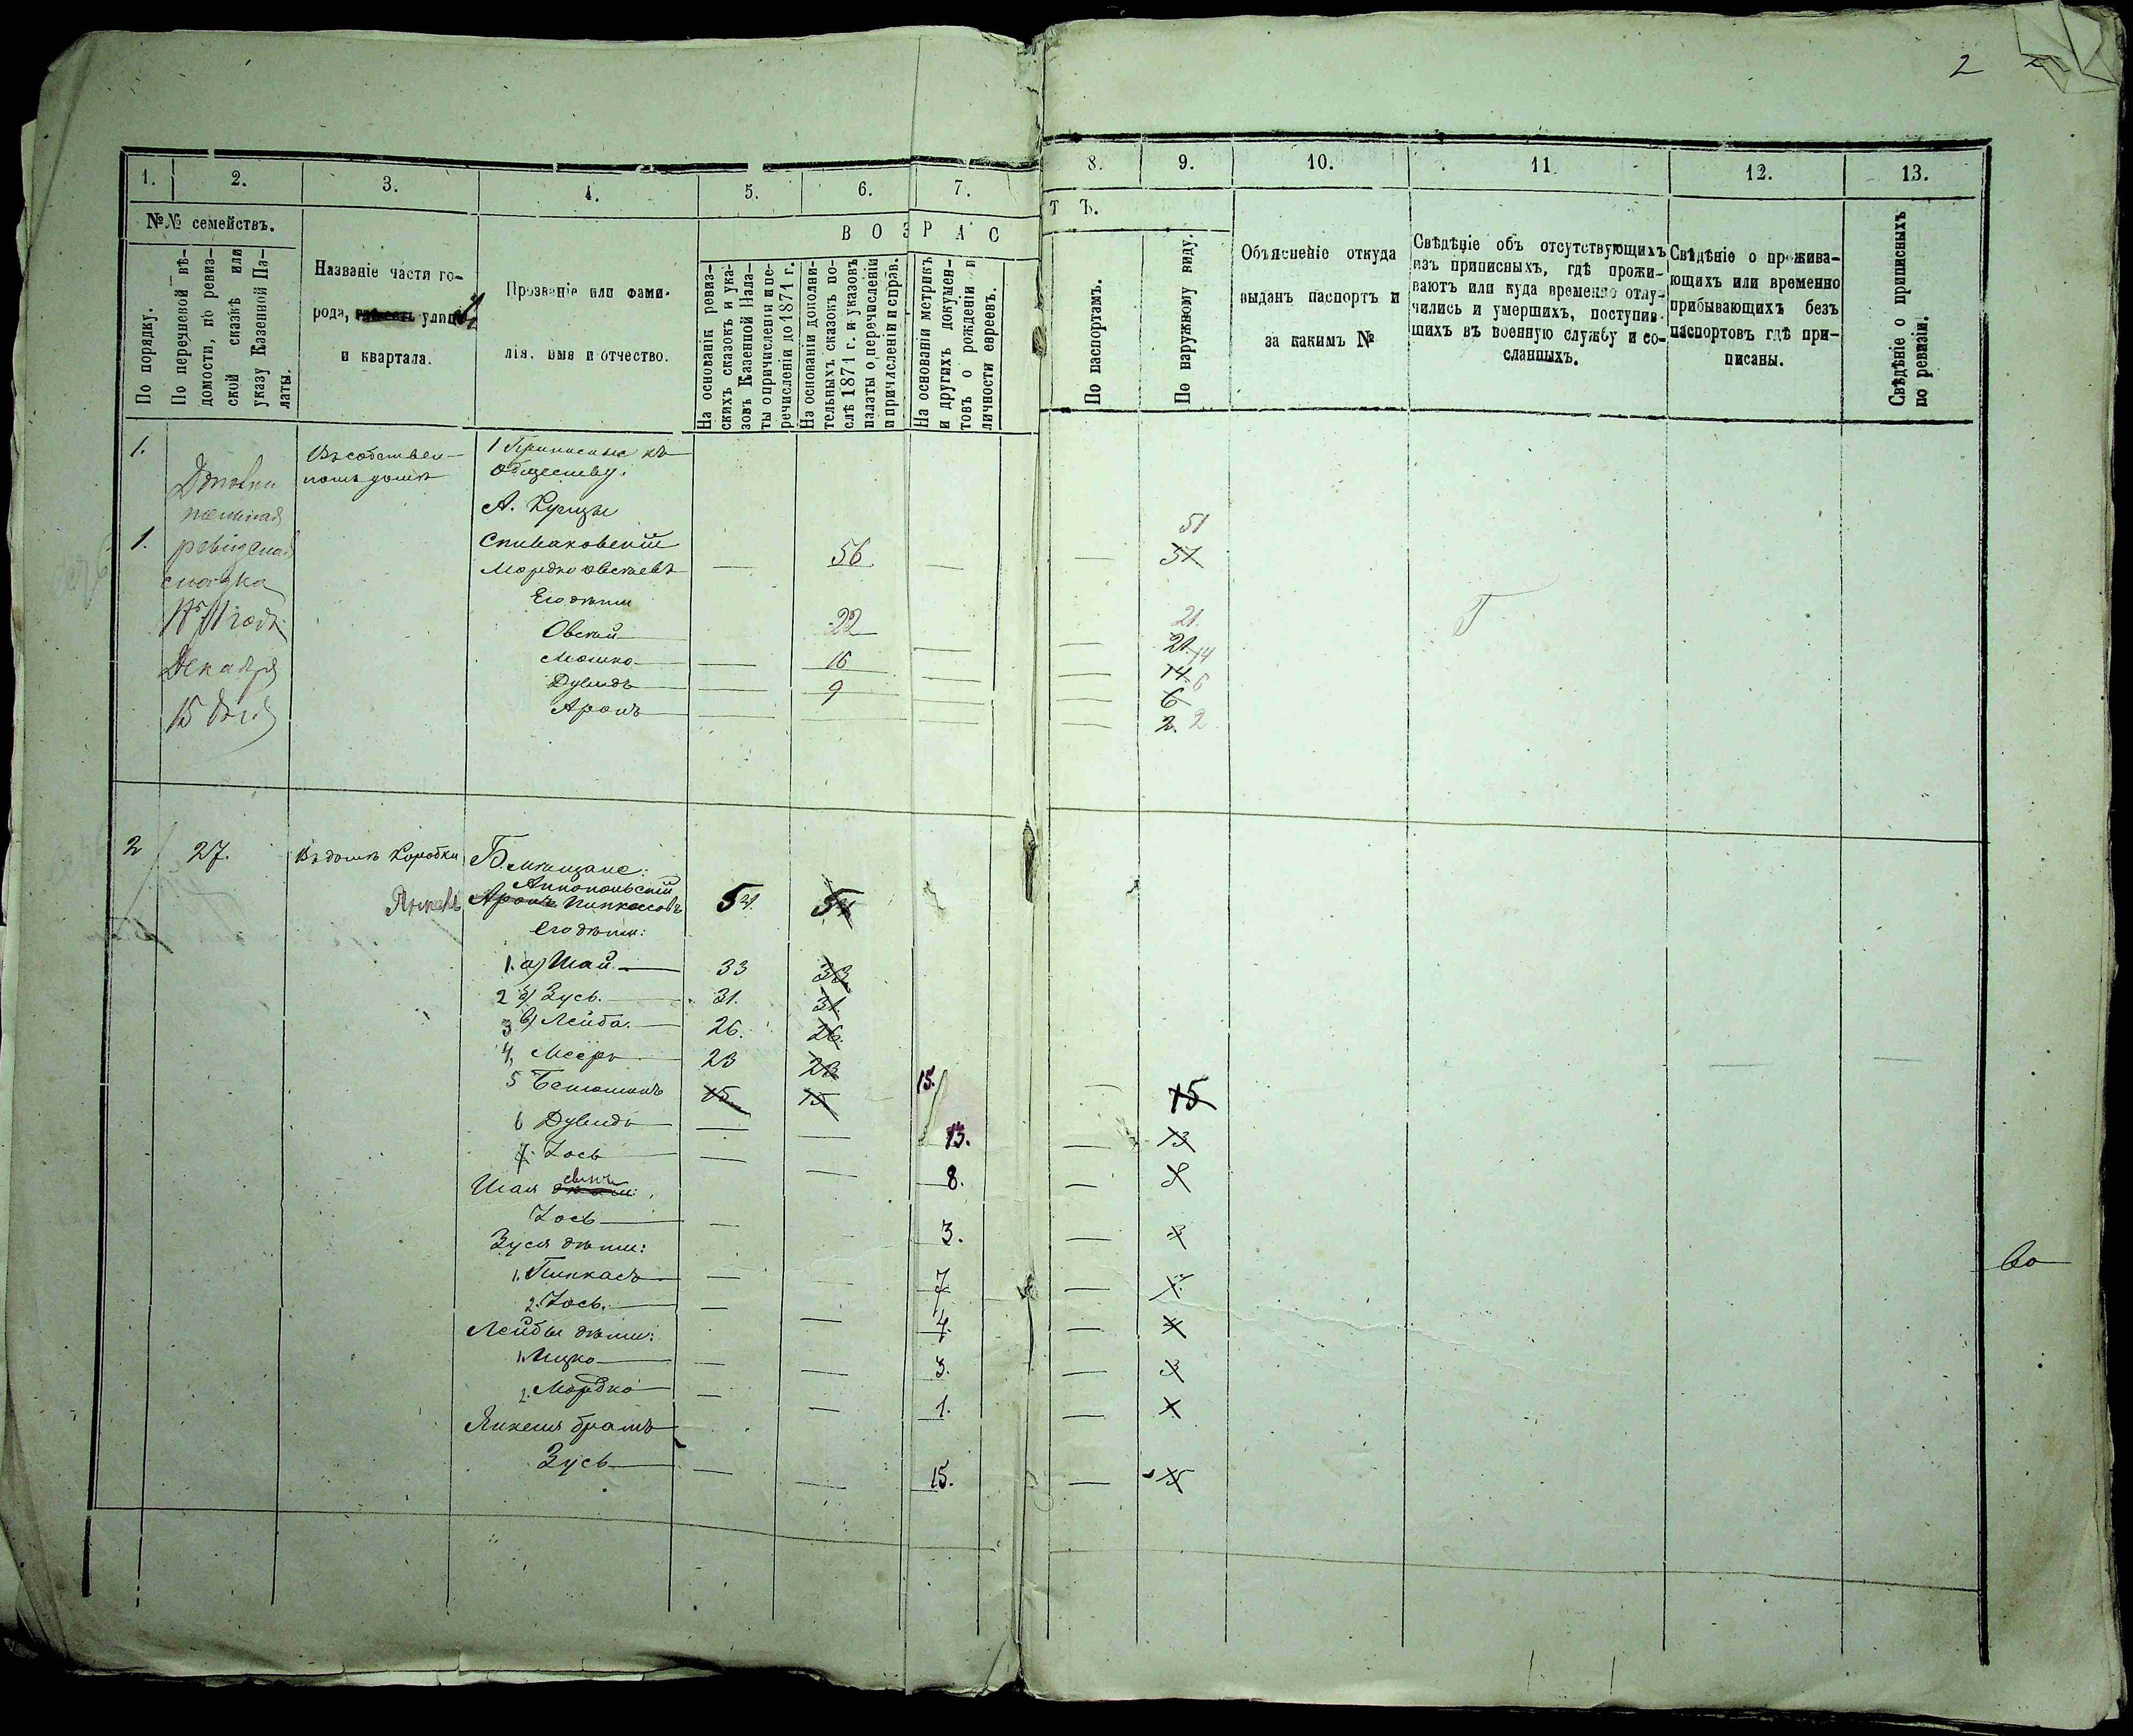 2
1.
2.
3.
4.
5.
6.
7.
8.
9.
10.
11
12.
13.
№№ семействъ.
По порядку.
По перечневой вѣ-
домости, по ревиз-
ской сказкѣ или
указу Казенной Па-
латы.
Названіе части го-
рода, улицы
и квартала.
Прозваніе или фами-
лія, имя и отчество.
ВОЗРАСТЪ.
На основаніи ревиз-
скихъ сказокъ и ука-
зовъ Казенной Пала-
ты о причисленіи и пе-
речисленіи до 1871 г.
На основаніи дополни-
тельныхъ сказокъ по-
слѣ 1871 г. и указовъ
палаты о перечисленіи
и причисленіи и справ.
На основаніи метрикъ
и другихъ докумен-
товъ о рожденіи и
личности евреевъ.
По паспортамъ.
По наружному виду.
Объясненіе откуда
выданъ паспортъ и
за какимъ №
Свѣдѣніе объ отсутствующихъ
изъ приписныхъ, гдѣ прожи-
ваютъ или куда временно отлу-
чились и умершихъ, поступив-
шихъ въ военную службу и со-
сланныхъ.
Свѣдѣніе о прожива-
ющихъ или временно
прибывающихъ безъ
паспортовъ гдѣ при-
писаны.
Свѣдѣніе о приписныхъ
по ревизіи.
1.
Въ собствен-
номъ домѣ
1 Приписные къ
обществу.
А. Купцы
1.
Дополни
тельная
ревизская
сказка
1871 года
Декабря
15 дня
Спиваковскій
Мордко Овсеевъ — 56 — — 51 51
Его дѣти
Овсей 22 — — 21 21.
Мошко — 16 — — 14 14
Дувидъ — 9 — — 6 6
Аронъ — — — — 2. 2
2 27. Въ домѣ Коробки
Б. мѣщане:
Аннопольскій
Янкель Аронъ Пинкасовъ 54 54
его дѣти:
1. а) Шай 33 33
2 б) Зусь. 31. 31
3 в) Лейба. 26. 26.
4, Мееръ 23 23
5 Беньоминъ 15 15 15. — 15
6 Дувидъ — — 13. — 13
7. Іось — — 8. — 8
Шая сынъ дѣти:
Іось — 3. — 3
Зуся дѣти:
1. Пинкасъ — — 7 — 7
2. Іось. — — 4. — 4
Лейбы дѣти:
1. Ицко — — 3. — 3
2. Мордко — — 1. — 1
Янкеля братъ
Зусь — — 15. — 15